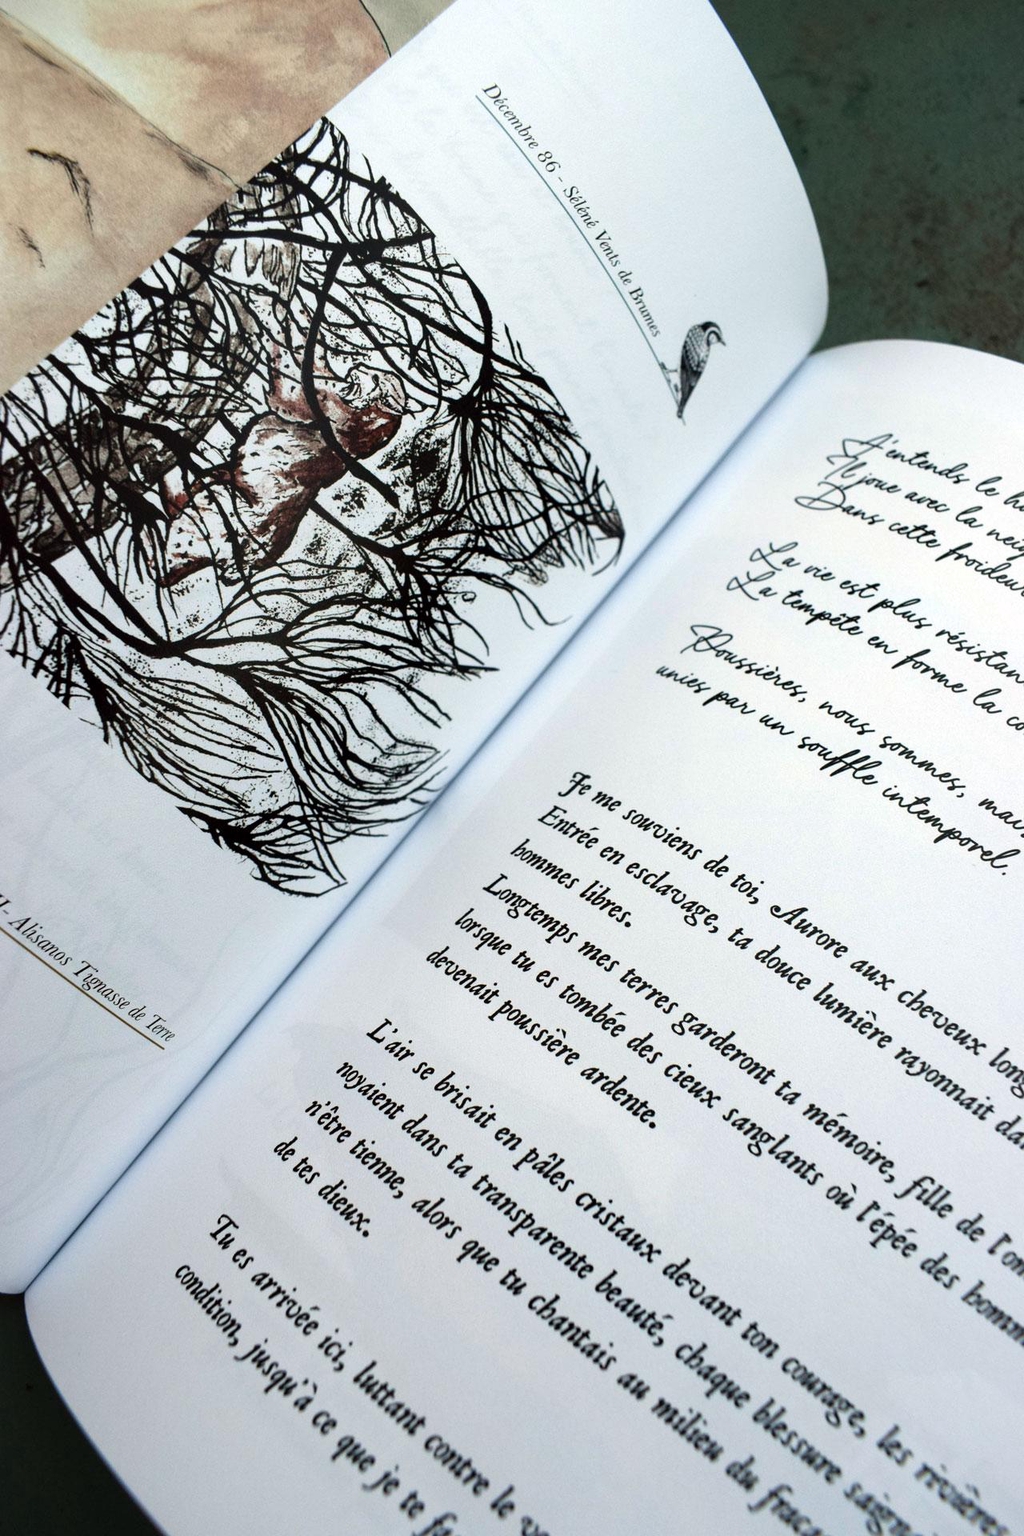 Décembre 86 - Séléné Vents de Brumes
- Alisanos Tignasse de Terre
J'entends le
Il joue avec la
Dans cette
La vie est plus
La tempête en forme la
Poussières, nous sommes,
unies par un souffle intemporel.
Je me souviens de toi, Aurore aux cheveux
Entrée en esclavage, ta douce lumière rayonnait
hommes libres.
Longtemps mes terres garderont ta mémoire, fille de
lorsque tu es tombée des cieux sanglants où l'épée des
devenait poussière ardente.
L'air se brisait en pâles cristaux devant ton courage, les rivières
noyaient dans ta transparente beauté, chaque blessure
n'être tienne, alors que tu chantais au milieu du
de tes dieux.
Tu es arrivée ici, luttant contre le
condition, jusqu'à ce que je te